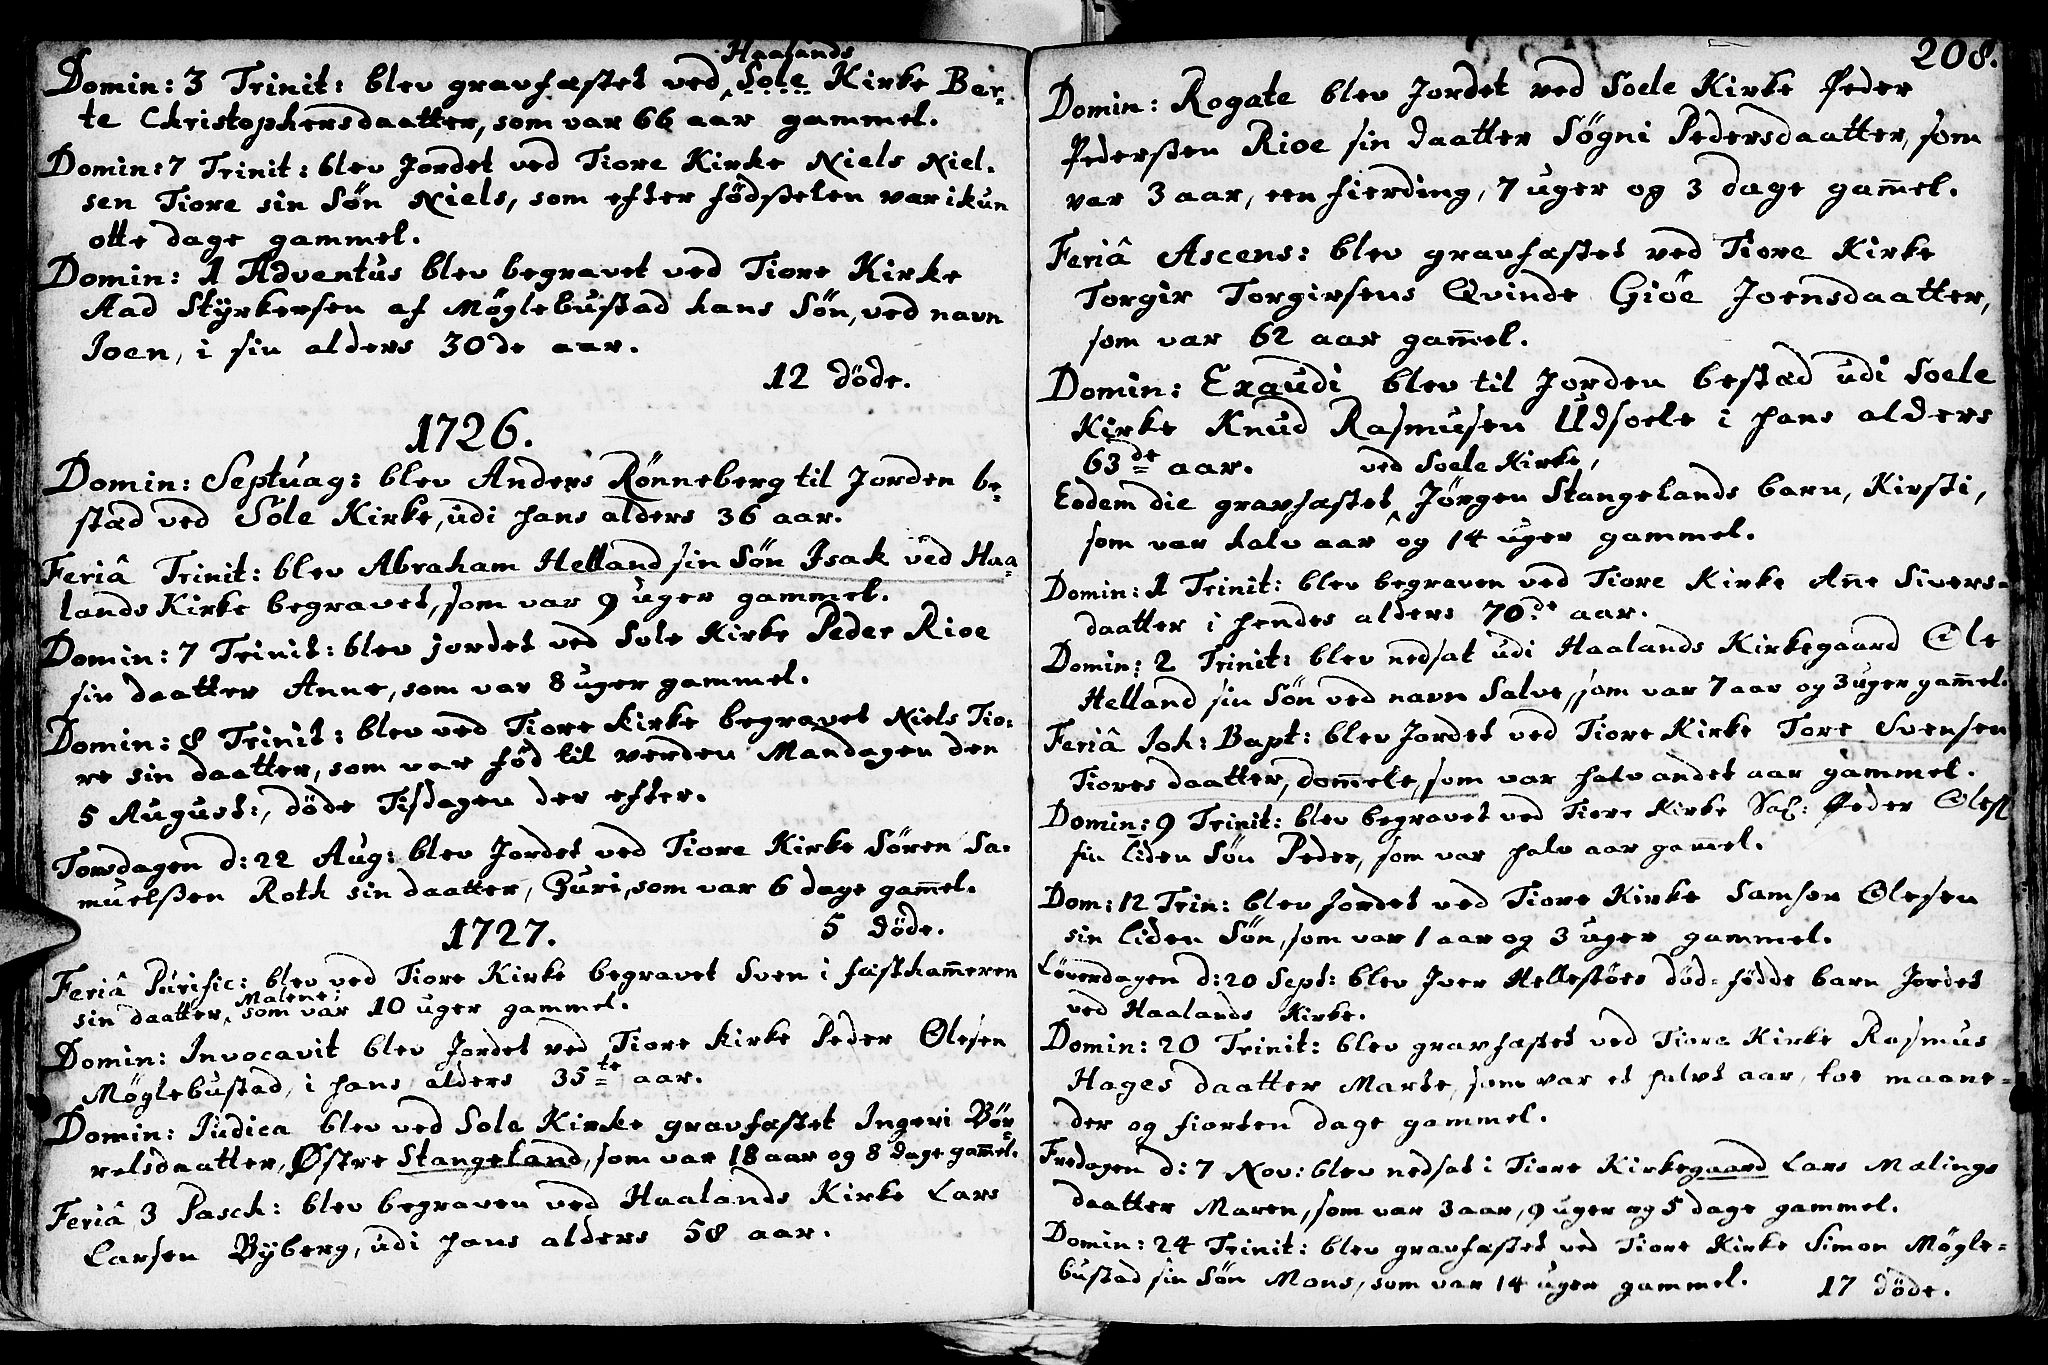 Haalands
Domin: 3 Trinit: blev gravfæstet ved Sole Kirke Ber-
te Christophersdaatter, som var 66 aar gammel.
Domin: 7 Trinit: blev Jordet ved Tiore Kirke Niels Niel-
sen Tiore sin Søn Niels, som efter fødsselen var ikun
otte dage gammel.
Domin: 1 Adventus blev begravet ved Tiore Kirke
Aad Styrkersen af Møglebustad hans Søn, ved navn
Joen, i sin alders 30de aar.
12 døde.
1726.
Domin: Septuag: blev Anders Rønneberg til Jorden be-
stæd ved Sole Kirke, udi hans alders 36 aar.
Feriâ Trinit: blev Abraham Helland sin Søn Isak ved Haa-
lands Kirke begravet, som var 9 uger gammel.
Domin: 7 Trinit: blev jordet ved Sole Kirke Peder Rioe
sin daatter Anne, som var 8 uger gammel.
Domin: 8 Trinit: blev ved Tiore kirke begravet Niels Tio-
re sin daatter, som var fød til verden Mandagen den
5 August:, døde Tisdagen der efter.
Torsdagen d: 22 Aug: blev Jordet ved Tiore Kirke Søren Sa-
muelssen Roth sin daatter, Guri, som var 6 dage gam̄el.
5 døde.
1727.
Feriâ Purific: blev ved Tiore Kirke begravet Sven i fæstkam̄eren
sin daatter, Malene, som var 10 uger gammel.
Domin: Invocavit blev Jordet ved Tiore kirke Peder Olesen
Møglebustad, i hans alders 35te aar.
Domin: Judica blev ved Sole Kirke gravfæstet Ingeri Bør-
relsdaatter, Østre Stangeland, som var 18 aar og 8 dage gam̄el.
Feriâ 3 Pasch: blev begraven ved Haalands Kirke Lars
Larsen Byberg, udi hans alders 58 aar.
208.
Domin: Rogate blev Jordet ved Soele Kirke Peder
Pederssen Rioe sin daatter Søgni Pedersdaatter, som
var 3 aar, een fierding, 7 uger og 3 dage gam̄el.
Feriâ Ascens: blev gravfæstet ved Tiore Kirke
Torgir Torgirsens Qvinde Giøe Joensdaatter,
som var 62 aar gam̄el.
Domin: Exaudi blev til Jorden bestæd udi Soele
Kirke Knud Rasmusen Udsoele i hans alders
63de aar.
ved Soele Kirke,
Eodem die gravfæstet Jørgen Stangelands barn, Kirsti,
som var halv aar og 14 uger gammel.
Domin: 1 Trinit: blev begraven ved Tiore Kirke An̄e Sivers-
daatter i hendes alders 70de aar.
Domin: 2 Trinit: blev nedsat udi Haalands Kirkegaard Ole
Helland sin Søn ved navn Salve, som var 7 aar og 3 uger gam̄el.
Feriâ Joh: Bapt: blev Jordet ved Tiore Kirke Tore Svensen
Tiores daatter, dom̄ete, som var halv andet aar gammel.
Domin: 9 Trinit: blev begravet ved Tiore Kirke Sal: Peder Oles
sin liden Søn Peder, som var halv aar gam̄el.
Dom: 12 Trin: blev Jordet ved Tiore Kirke Samson Olesen
sin liden Søn, som var 1 aar og 3 uger gammel.
Løverdagen d: 20 Sept: blev Iver Hellestøes død-fødde barn Jordet
ved Haalands Kirke.
Domin: 20 Trinit: blev gravfæstet ved Tiore Kirke Rasmus
Hages daatter Marte, som var et halvt aar, toe maane-
der og fiorten dage gammel.
Fredagen d: 7 Nov: blev nedsat i Tiore Kirkegaard Lars Mælings
daatter Maren, som var 3 aar, 9 uger og 5 dage gammel.
Domin: 24 Trinit: blev gravfæstet ved Tiore Kirke Simon Møgle-
bustad sin Søn Mons, som var 14 uger gammel.
17 døde.